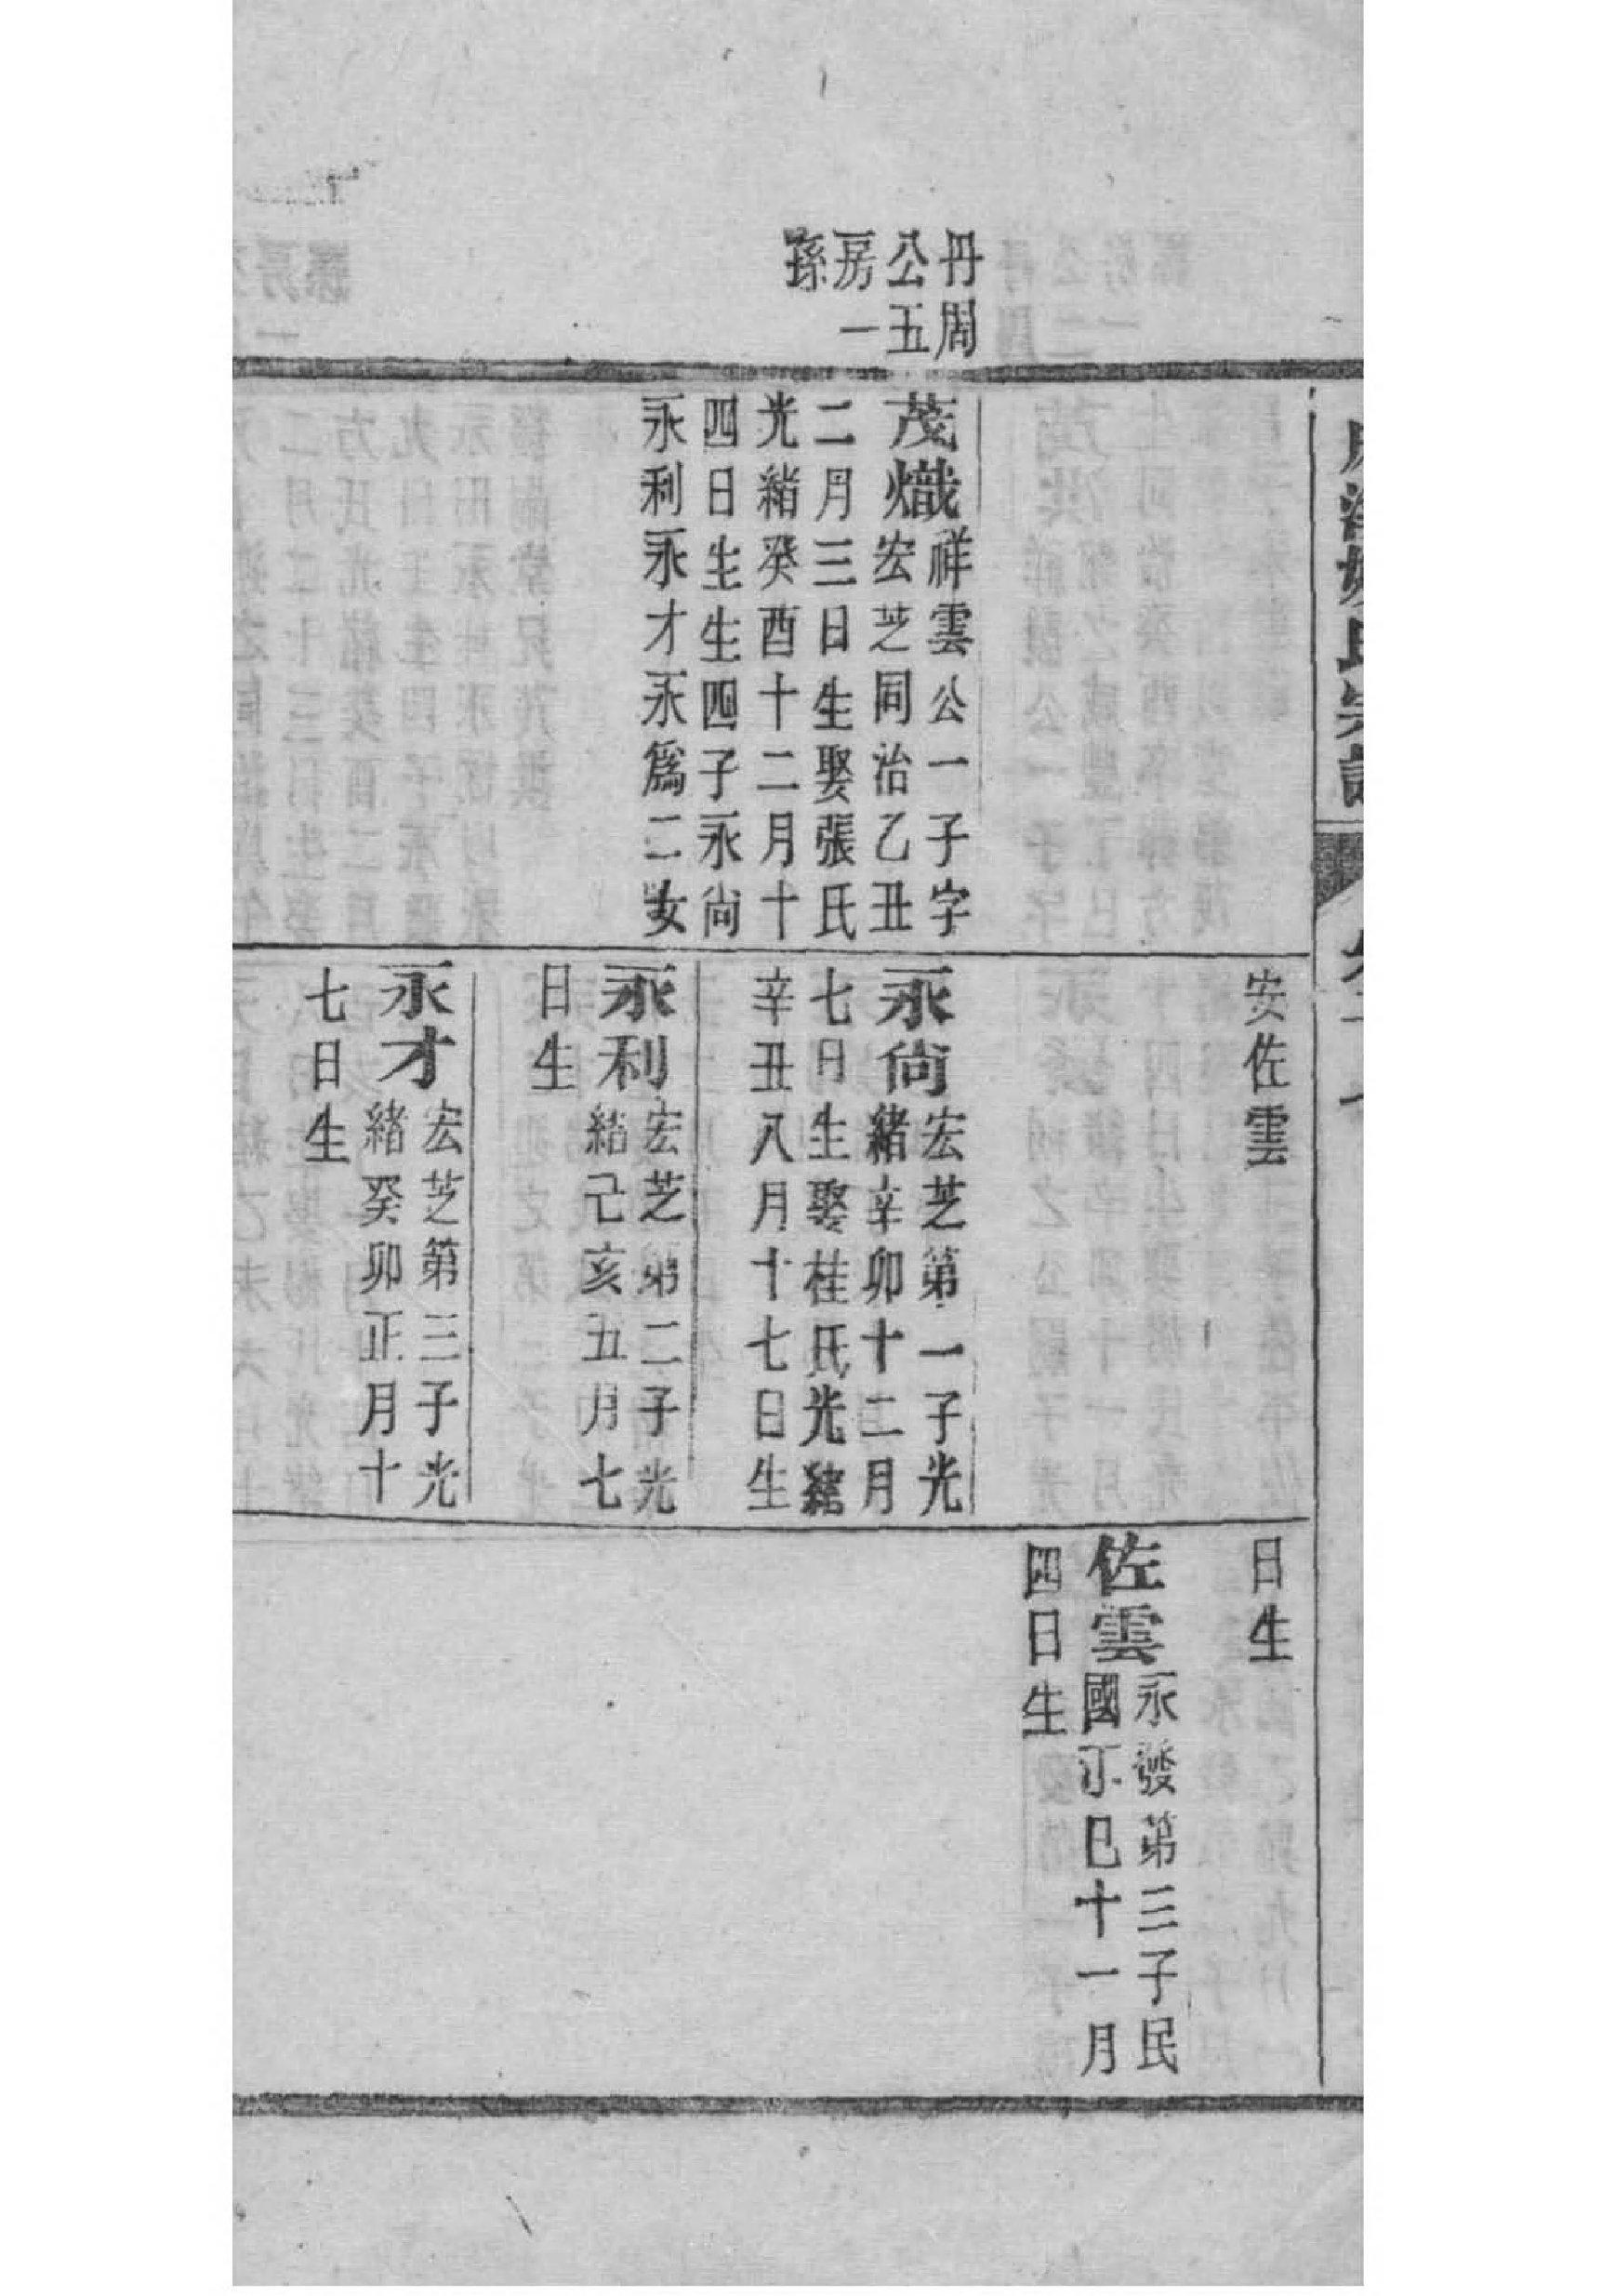 丹周
公五
房一
孫
茂熾
祥雲公一子字
宏芝同治乙丑
二月三日生娶張氏
光緒癸酉十二月十
四日生生四子永尚
永利永才永爲二女
安佐雲
永尙
宏芝第一子光
緒辛卯十二月
七日生娶桂氏光緒
辛丑八月十七日生
永利
宏芝第二子光
緒己亥五月七
日生
永才
宏芝第三子光
緒癸卯正月十
七日生
日生
佐雲
永發第三子民
國丁巳十一月
四日生